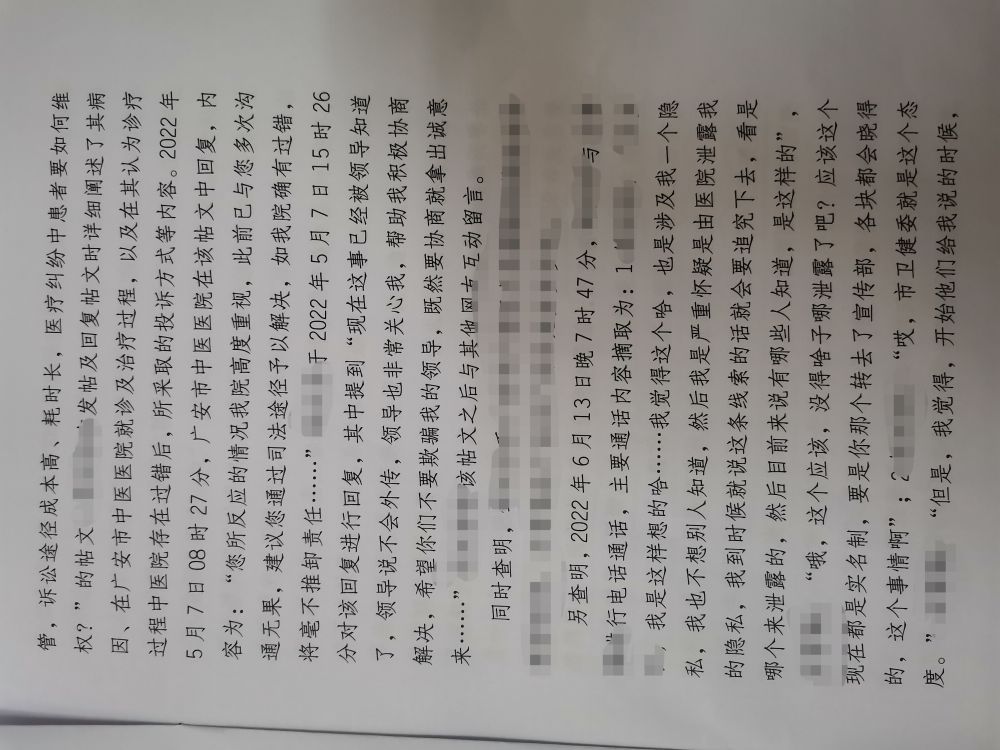 管，诉讼途径成本高、耗时长，医疗纠纷中患者要如何维
权？”的帖文 发帖及回复帖文时详细阐述了其病
因、在广安市中医医院就诊及治疗过程，以及在其认为诊疗
过程中医院存在过错后，所采取的投诉方式等内容。2022 年
5 月 7 日 08 时 27 分，广安市中医医院在该帖文中回复，内
容为：“您所反应的情况我院高度重视，此前已与您多次沟
通无果，建议您通过司法途径予以解决，如我院确有过错，
将毫不推卸责任……” 于 2022 年 5 月 7 日 15 时 26
分对该回复进行回复，其中提到“现在这事已经被领导知道
了，领导说不会外传，领导也非常关心我，帮助我积极协商
解决，希望你们不要欺骗我的领导，既然要协商就拿出诚意
来……” 该帖文之后与其他网友互动留言。
同时查明，
另查明，2022 年 6 月 13 日晚 7 时 47 分， 与
行电话通话，主要通话内容摘取为：1
，我是这样想的哈……我觉得这个哈，也是涉及我一个隐
私，我也不想别人知道，然后我是严重怀疑是由医院泄露我
的隐私，我到时候就说这条线索的话就会要追究下去，看是
哪个来泄露的，然后目前来说有哪些人知道，是这样的”，
“哦，这个应该，没得啥子哪泄露了吧？应该这个
现在都是实名制，要是你那个转去了宣传部，各块都会晓得
的，这个事情啊”；2 “哎，市卫健委就是这个态
度。” “但是，我觉得，开始他们给我说的时候，